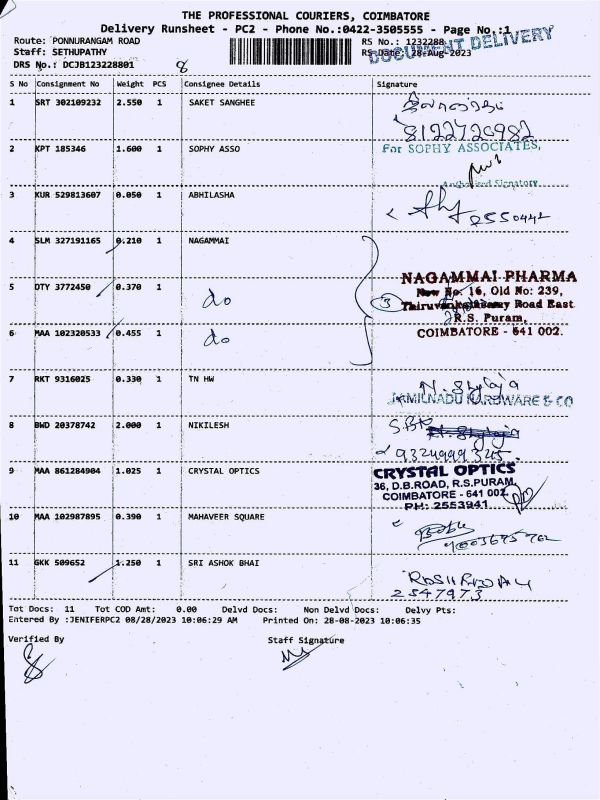 THE PROFESSIONAL COURIERS, COIMBATORE
Delivery Runsheet - PC2 - Phone No.:0422-3505555 - Page No.:1
Route: PONNURANGAM ROAD
RS No.: 1232288
DOCUMENT DELIVERY
Staff: SETHUPATHY
RS Date: 28-Aug-2023
DRS No.: DCJB123228801
8
S No Consignment No Weight PCS Consignee Details Signature
1 SRT 302109232 2.550 1 SAKET SANGHEE
8122720982
2 KPT 185346 1.600 1 SOPHY ASSO
For SOPHY ASSOCIATES,
Authorised Signatory
3 KUR 529813607 0.050 1 ABHILASHA
2550442
4 SLM 327191165 0.210 1 NAGAMMAI
5 DTY 3772450 0.370 1 do
6 MAA 102320533 0.455 1 do
3
NAGAMMAI PHARMA
New No: 16, Old No: 239,
Road East
R.S. Puram,
COIMBATORE - 641 002.
7 RKT 9316025 0.330 1 TN HW
N. Shylaja
TAMILNADU HARDWARE & CO
8 BWD 20378742 2.000 1 NIKILESH
9324999345
9 MAA 861284904 1.025 1 CRYSTAL OPTICS
CRYSTAL OPTICS
36, D.B.ROAD, R.S.PURAM,
COIMBATORE - 641 002.
PH: 2553941
10 MAA 102987895 0.390 1 MAHAVEER SQUARE
11 GKK 509652 1.250 1 SRI ASHOK BHAI
2547973
Tot Docs: 11 Tot COD Amt: 0.00 Delvd Docs: Non Delvd Docs: Delvy Pts:
Entered By :JENIFERPC2 08/28/2023 10:06:29 AM Printed On: 28-08-2023 10:06:35
Verified By Staff Signature